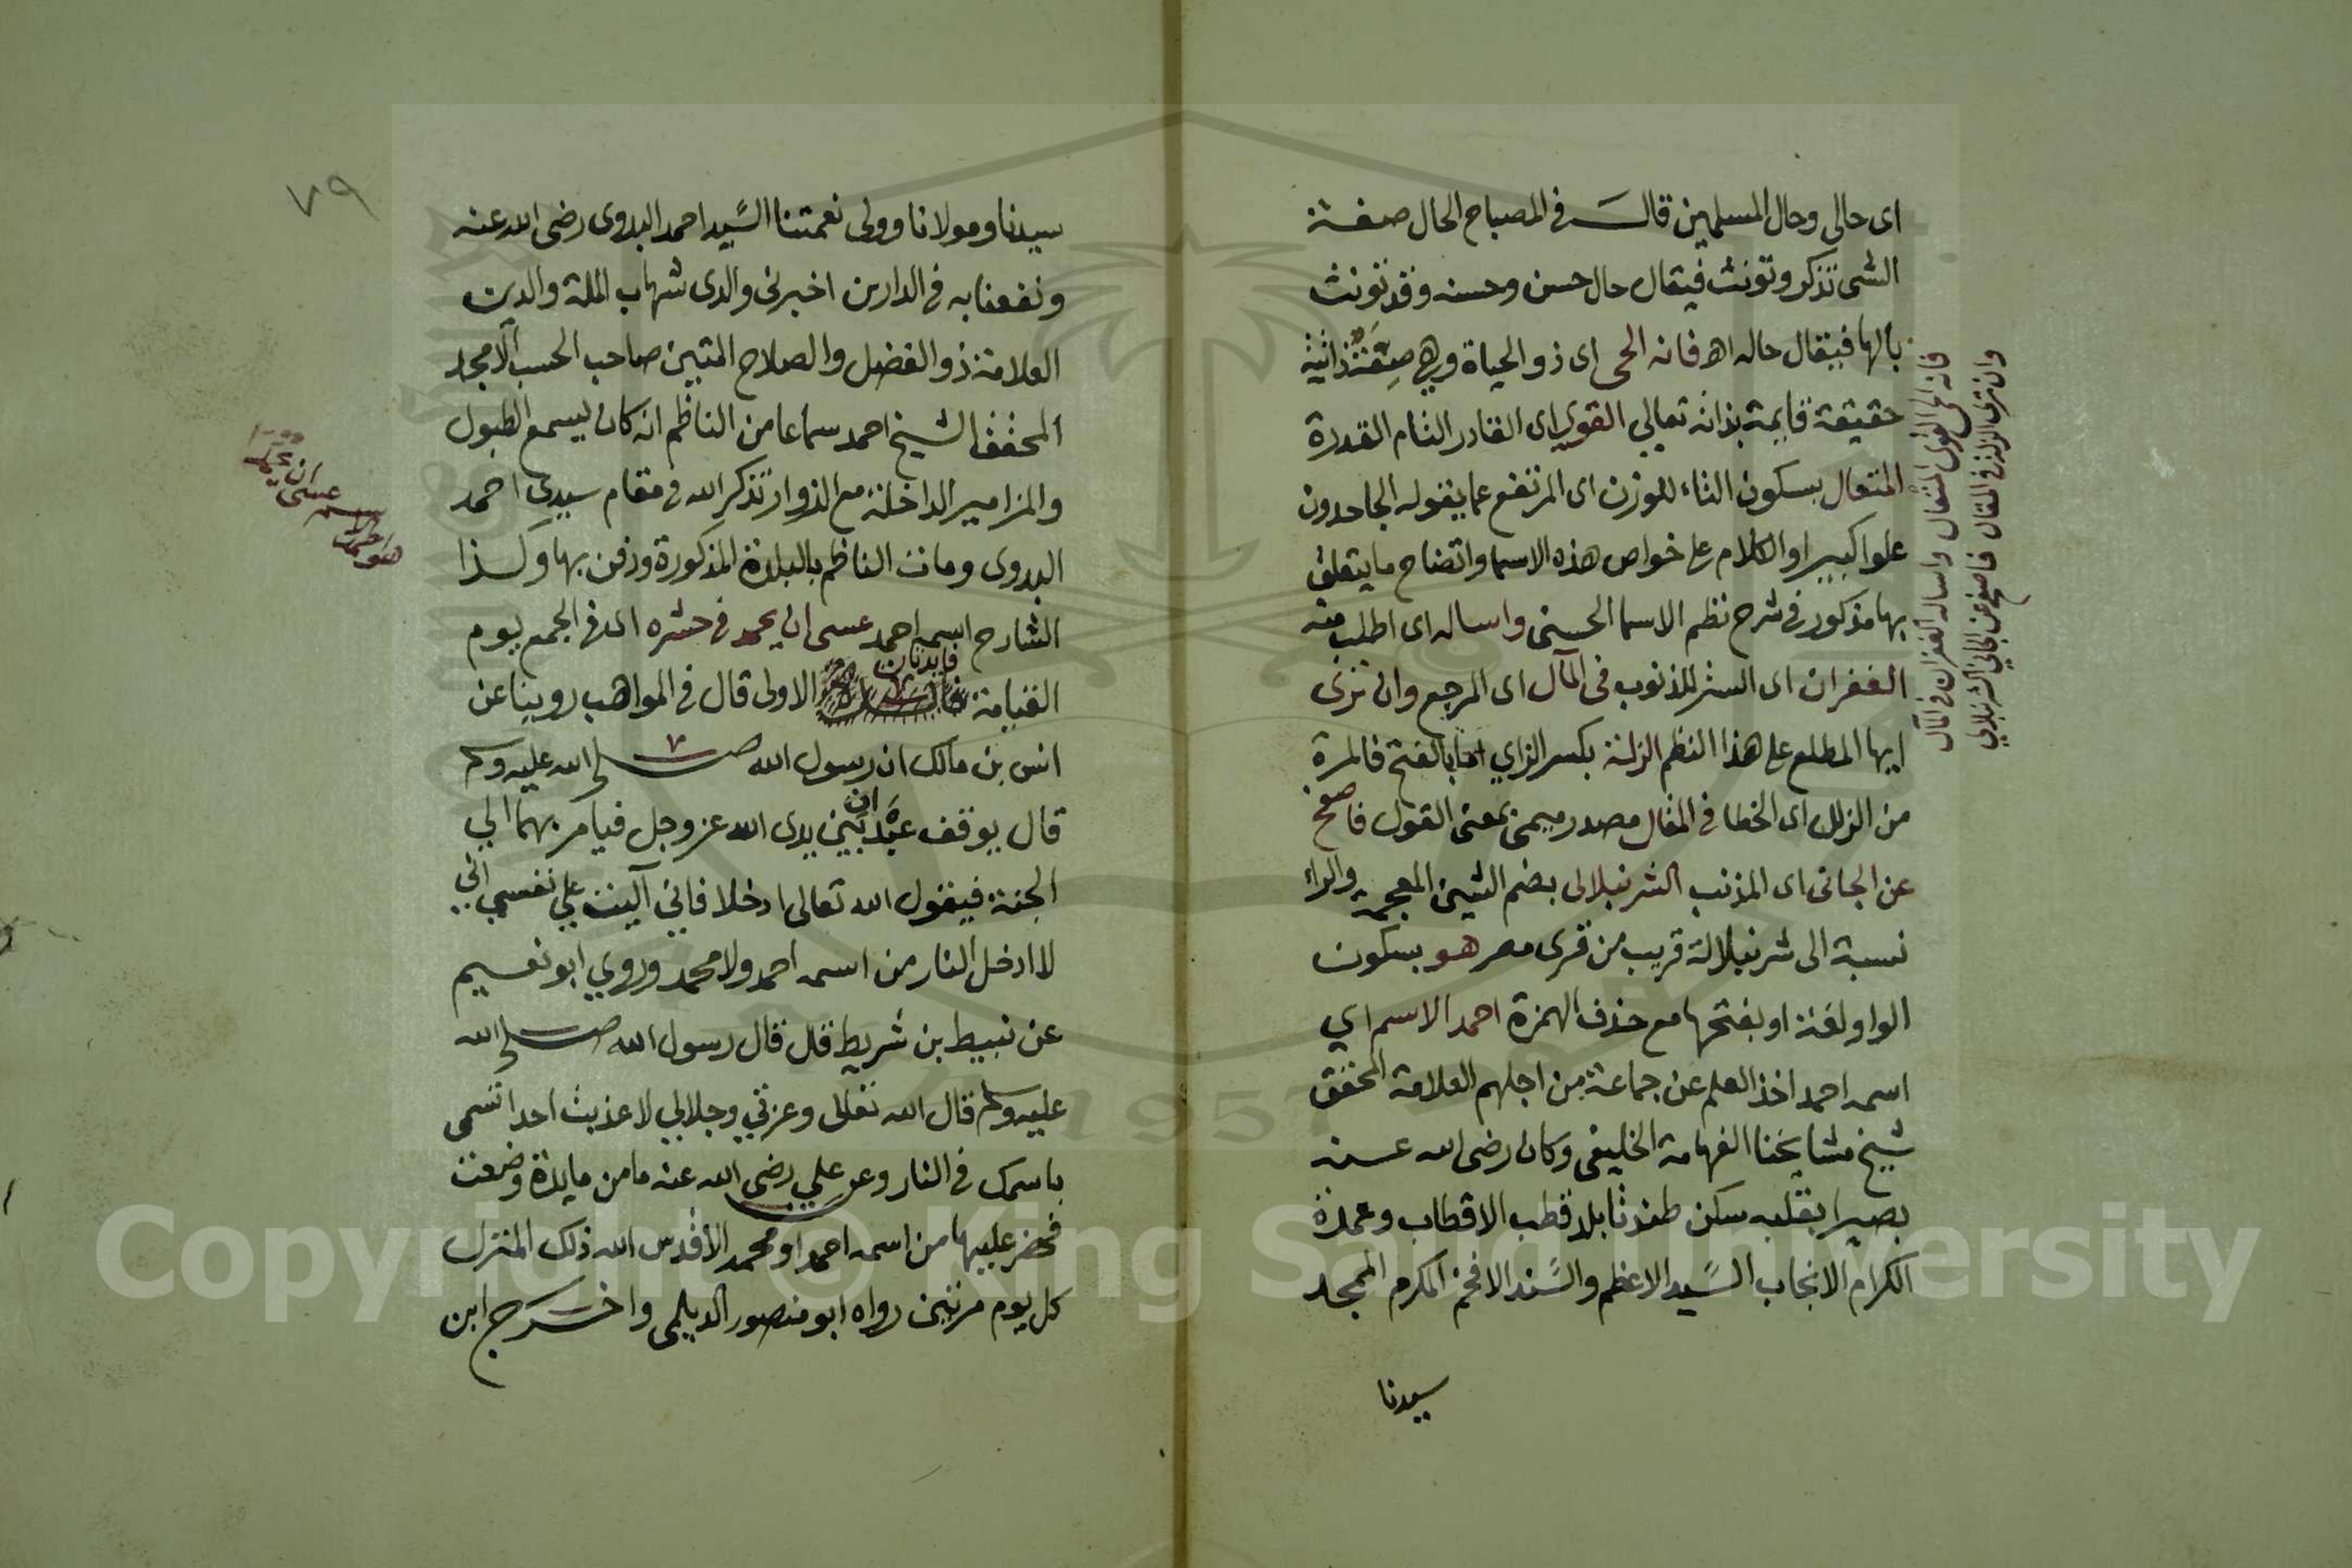 اى حالى وحال المسلمين قال فى المصباح الحال صفة
الشى تذكر وتونث فيقال حال حسن وحسنه وقد تونث
بالها فيقال حاله اه فانه الحى اى ذو الحياة وهى صفة ذاتية
حقيقة قايمة بذاته تعالي القوي اى القادر التام القدرة
المتعال بسكون التاء للوزن اى المرتفع عما يقوله الجاحدون
علوا كبيرا والكلام على خواص هذه الاسما واتضاح ما يتعلق
بها مذكور فى شرح نظم الاسما الحسنى واساله اى اطلب منه
الغفران اى الستر للذنوب فى المآل اى المرجع وان ترى
ايها المطلع على هذا النظم الزلة بكسر الزاي اما بالفتح فالمرة
من الزلل اى الخطا فى المقال مصدر ميمى بمعنى القول فاصفح
عن الجانى اى المذنب الشرنبلالى بضم الشين المعجمة والراء
نسبة الى شرنبلالة قريب من قرى مصر هو بسكون
الواو لغة او بفتحها مع حذف الهمزة احمد الاسم اي
اسمه احمد اخذ العلم عن جماعة من اجلهم العلامة المحقق
شيخ مشايخنا الفهامة الخليفى وكان رضى الله عنه
بصيرا بقلبه سكن طندتا بلد قطب الاقطاب وعمدة
الكرام الانجاب السيد الاعظم والسند الافخم المكرم الممجد
سيدنا
فانه الحى القوى المتعال واساله الغفران فى المآل
وان ترى الزلة فى المقال فاصفح عن الجاني الشرنبلالي
٧٩
سيدنا ومولانا وولى نعمتنا السيد احمد البدوى رضى الله عنه
ونفعنا به فى الدارين اخبرنى والدى شهاب الملة والدين
العلامة ذو الفضل والصلاح المتين صاحب الحسب الامجد
المحقق الشيخ احمد سماعا من الناظم انه كان يسمع الطبول
والمزامير الداخلة مع الزوار تذكر الله فى مقام سيدي احمد
البدوى ومات الناظم بالبلدة المذكورة ودفن بها وكذا
الشارح اسمه احمد عسى ان يحمد فى حشره اى فى الجمع يوم
القيامة فايدتان الاولى قال فى المواهب روينا عن
انس بن مالك ان رسول الله صلى الله عليه وسلم
قال يوقف عبدان بين يدى الله عز وجل فيامر بهما الي
الجنة فيقول الله تعالى ادخلا فاني آليت علي نفسي اني
لا ادخل النار من اسمه احمد ولا محمد وروي ابو نعيم
عن نبيط بن شريط قال قال رسول الله صلى الله
عليه وسلم قال الله تعالى وعزتي وجلالي لا عذبت احدا تسمى
باسمك فى النار وعن علي رضى الله عنه ما من مايدة وضعت
فحضر عليها من اسمه احمد او محمد الا قدس الله ذلك المنزل
كل يوم مرتين رواه ابو منصور الديلمى واخرج ابن
هو احمد الاسم عسى ان يحمد
Copyright © King Saud University
1957